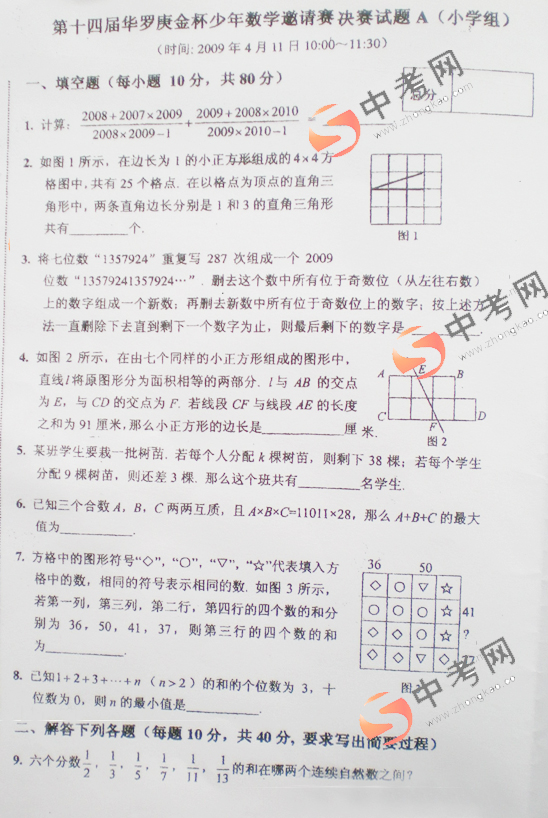 第十四届华罗庚金杯少年数学邀请赛决赛试题A（小学组）
（时间: 2009年4月11日 10:00~11:30）
一、填空题（每小题 10 分，共 80 分）
总分
1. 计算: (2008+2007×2009)/(2008×2009-1) + (2009+2008×2010)/(2009×2010-1) =
2. 如图1所示，在边长为1的小正方形组成的4×4方
格图中,共有25个格点. 在以格点为顶点的直角三
角形中，两条直角边长分别是1和3的直角三角形
共有________个.
图1
3. 将七位数“1357924”重复写 287 次组成一个 2009
位数“13579241357924…”. 删去这个数中所有位于奇数位（从左往右数）
上的数字组成一个新数；再删去新数中所有位于奇数位上的数字；按上述方
法一直删除下去直到剩下一个数字为止，则最后剩下的数字是________.
4. 如图2所示，在由七个同样的小正方形组成的图形中,
直线l将原图形分为面积相等的两部分. l与AB的交点
为E，与CD的交点为F. 若线段CF与线段AE的长度
之和为91厘米,那么小正方形的边长是________厘米.
A E B
C F D
图2
5. 某班学生要栽一批树苗. 若每个人分配k棵树苗，则剩下38棵；若每个学生
分配9棵树苗，则还差3棵. 那么这个班共有________名学生.
6. 已知三个合数A，B，C两两互质，且A×B×C=11011×28，那么A+B+C的最大
值为________.
7. 方格中的图形符号“◇”，“○”，“▽”，“☆”代表填入方
格中的数，相同的符号表示相同的数. 如图3所示，
若第一列，第三列，第二行，第四行的四个数的和分
别为36，50，41，37，则第三行的四个数的和
为________.
36 50
◇ ○ ▽ ☆
○ ○ ○ ☆ 41
◇ ○ ▽ ○ ?
◇ ◇ ▽ ◇ 37
图
8. 已知1+2+3+…+n（n>2）的和的个位数为3，十
位数为0，则n的最小值是________.
二、解答下列各题（每题10分，共40分，要求写出简要过程）
9. 六个分数1/2, 1/3, 1/5, 1/7, 1/11, 1/13的和在哪两个连续自然数之间?
中考网
www.zhongkao.com
中考网
www.zhongkao.com
中考网
www.zhongkao.com